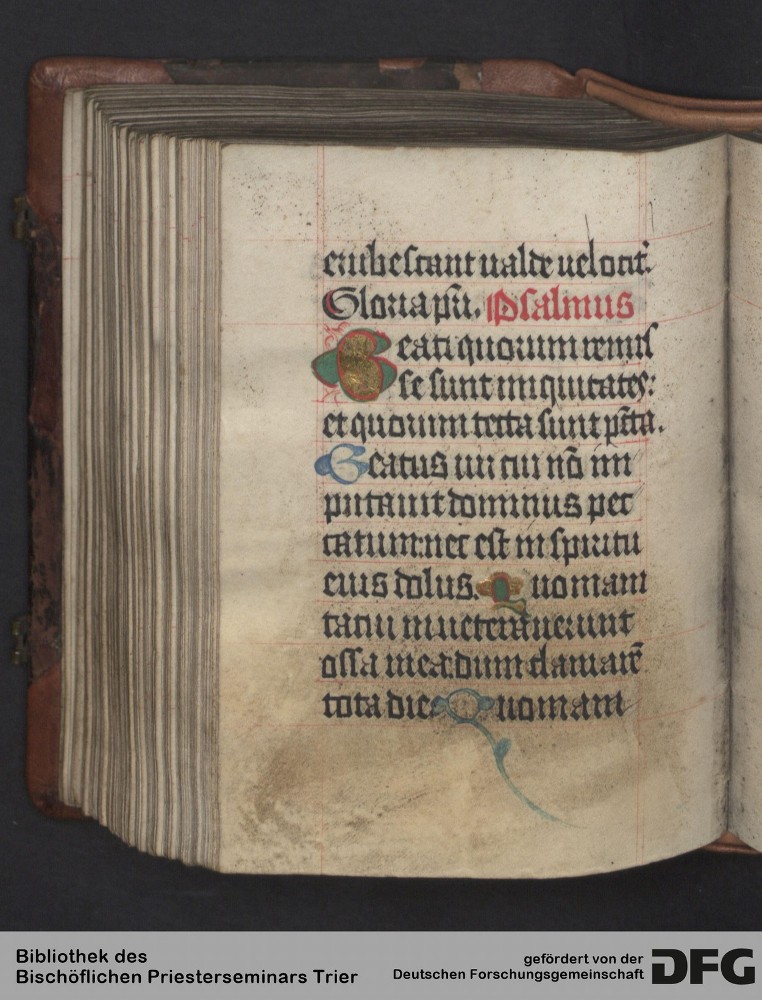 erubescant ualde uelocit᷑.
Gloria pr̄i. Psalmus
Beati quorum remis
se sunt iniquitates:
et quorum tecta sunt pc̄cta.
Beatus uir cui nō im
putauit dominus pec
catum: nec est in spiritu
eius dolus. Quoniam
tacui inueterauerunt
ossa mea: dum clamarē
tota die. Quoniam
Bibliothek des
Bischöflichen Priesterseminars Trier
gefördert von der
Deutschen Forschungsgemeinschaft
DFG